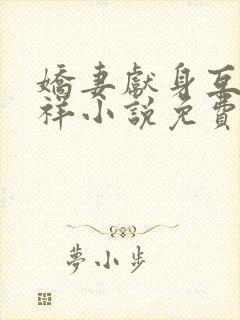 嬌妻獻身互
祥小說免費
夢小步